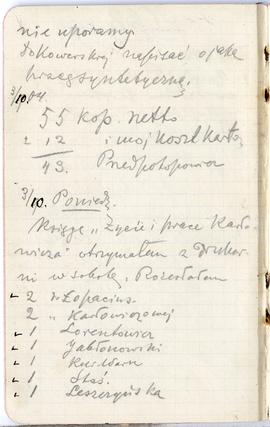 nie uporamy.
Dokowerskiej napisać o jaką
pracę syntetyczną.
3/10 04.
55 kop. netto
± 12 i mój koszt karto
43. Przedpotopowca
3/10. Poniedz.
Księgę „Życie i prace Karło-
wicza" otrzymałem z Drukar-
ni w sobotę. Rozesłałem
2 Łopacińs.
2 „ Karłowiczowej
1 Lorentowicz
1 Jabłonowski
1
1 Staś.
1 Leszczyńska